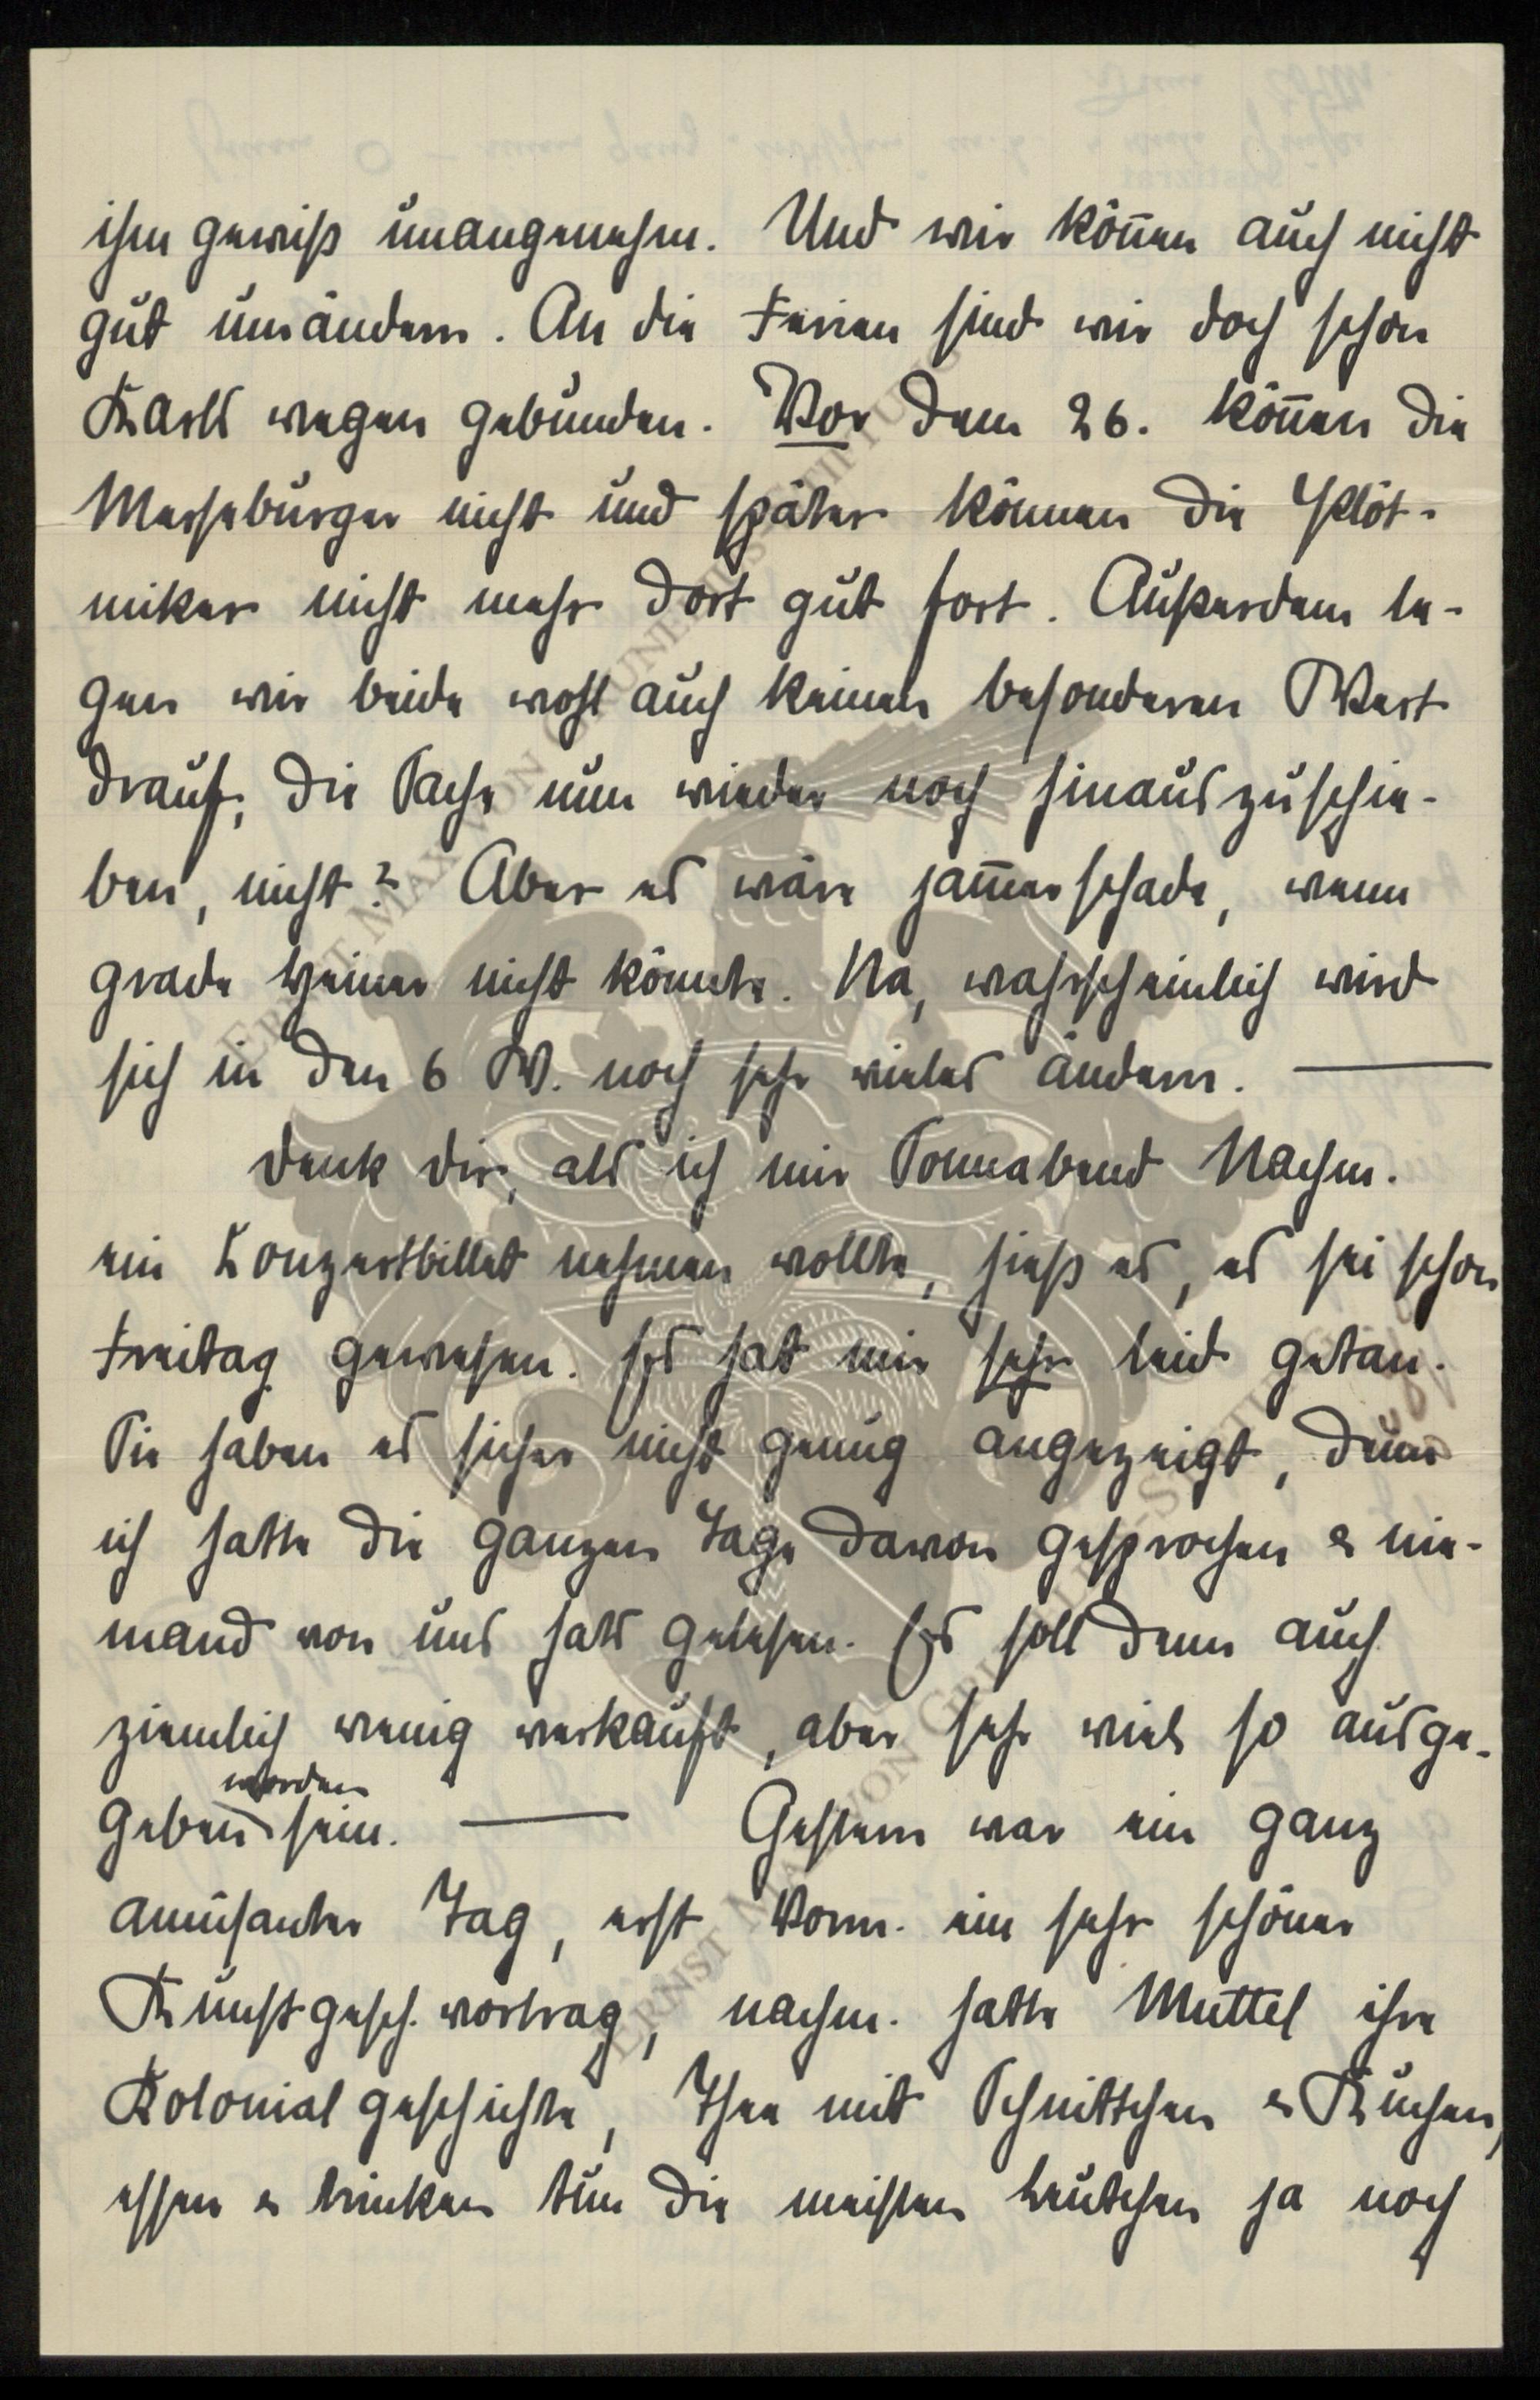 ihm gewiß unangenehm. Und wir kön̅en auch nicht
gut umändern. An die Ferien sind wir doch schon
Karls wegen gebunden. Vor dem 26. kön̅en die
Merseburger nicht und später können die
niker nicht mehr dort gut fort. Außerdem le-
gen wir beide wohl auch keinen besonderen Wert
drauf, die Sache nun wieder noch hinauszuschie-
ben, nicht? Aber es wäre jam̅erschade, wenn
grade Heiner nicht könnte. Na, wahrscheinlich wird
sich in den 6 W. noch sehr vieles ändern. —
Denk dir, als ich mir Sonnabend Nachm.
ein Konzertbillet nehmen wollte, hieß es, es sei schon
Freitag gewesen. Es hat mir sehr leid getan.
Sie haben es sicher nicht genug angezeigt, denn
ich hatte die ganzen Tage davon gesprochen & nie-
mand von uns hats gelesen. Es soll denn auch
ziemlich wenig verkauft, aber sehr viel so ausge-
geben worden sein. — Gestern war ein ganz
amüsanter Tag, erst Vorm. ein sehr schöner
Kunstgesch. vortrag, nachm. hatte Muttel ihre
Kolonialgeschichte, Thee mit Schnittchen & Kuchen,
essen & trinken tun die meisten Leutchen ja noch
ERNST MAX VON GRUNELIUS-STIFTUNG
ERNST MAX VON GRUNELIUS-STIFTUNG